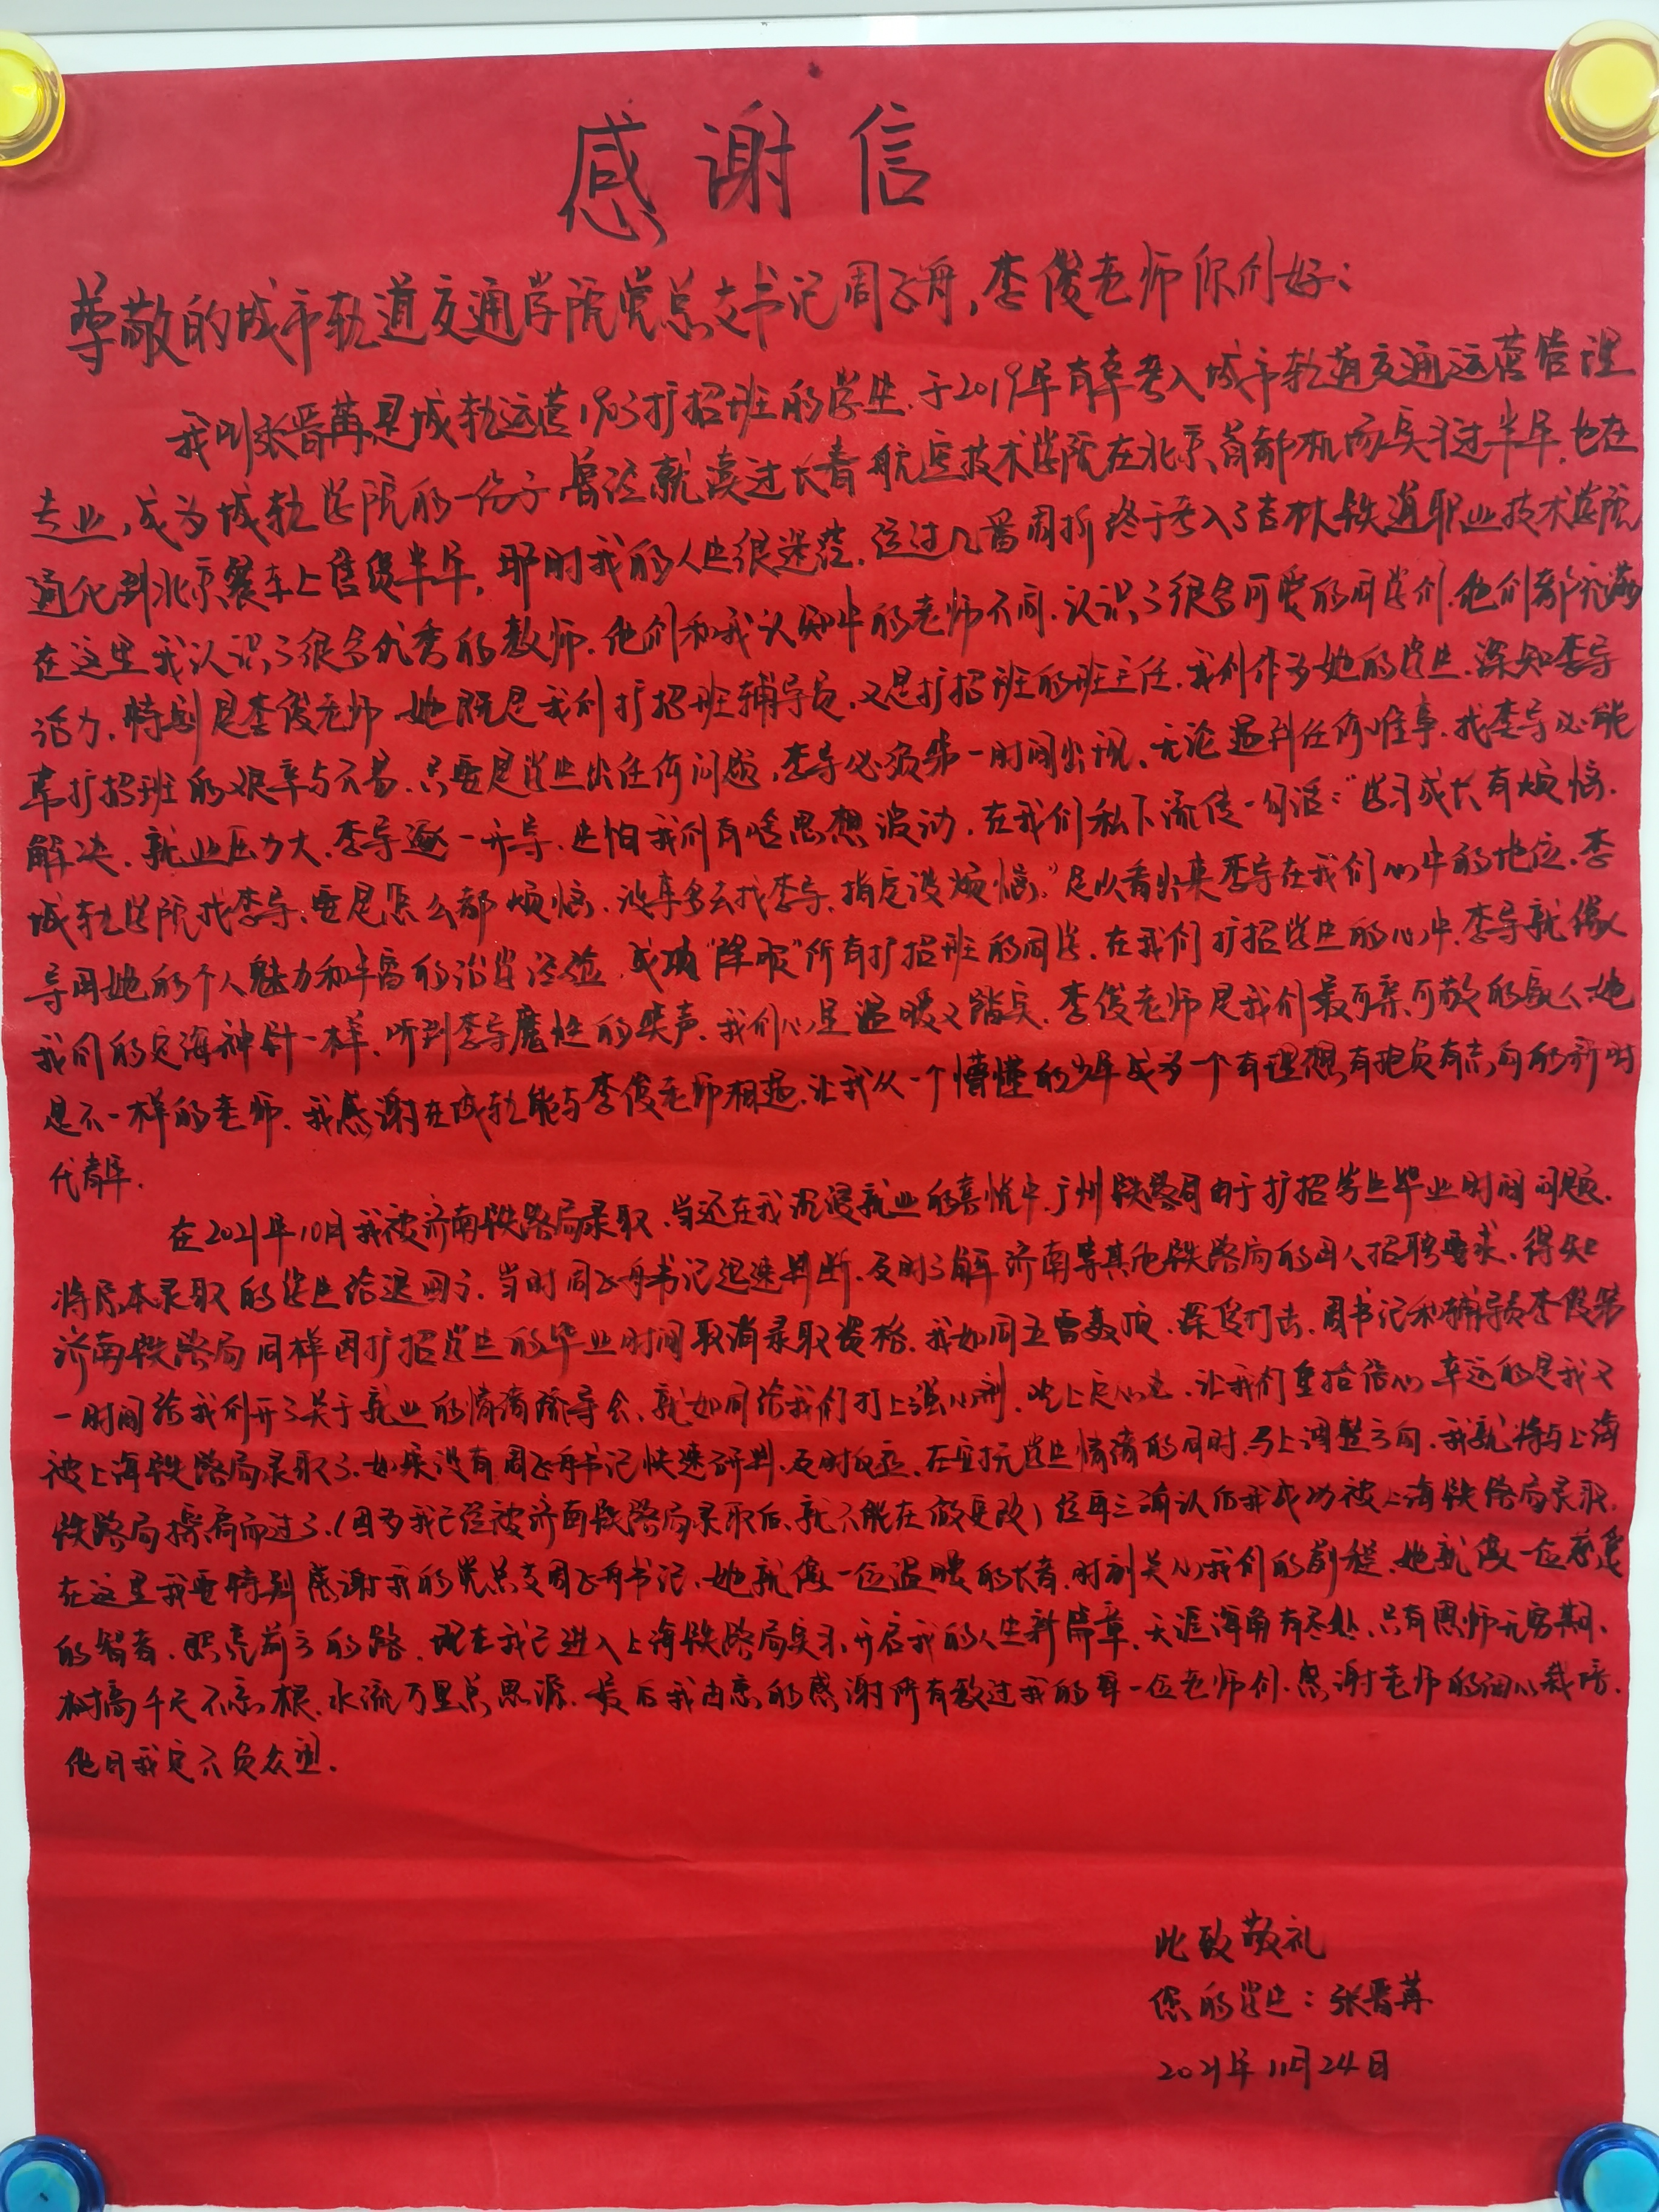 感谢信
尊敬的城市轨道交通学院党总支书记周飞舟,李俊老师你们好:
我叫张晋苒是城轨运营1903扩招班的学生.于2019年有幸考入城市轨道交通运营管理
专业,成为城轨学院的一份子曾经就读过长春航空技术学院在北京首都机场实习过半年.也在
通化到北京餐车上售货半年,那时我的人生很迷茫.经过几番周折终于考入了吉林铁道职业技术学院
在这里我认识了很多优秀的教师.他们和我认知中的老师不同.认识了很多可爱的同学们.他们都充满
活力.特别是李俊老师她既是我们扩招班辅导员.又是扩招班的班主任.我们作为她的学生.深知李导
带扩招班的艰辛与不易.只要是学生出任何问题,李导必须第一时间出现.无论遇到任何难事.找李导必能
解决.就业压力大.李导逐一开导.生怕我们有啥思想波动.在我们私下流传一句话:“学习成长有烦恼.
城轨学院找李导.要是怎么都烦恼.没事多去找李导.指定没烦恼.”足以看出来李导在我们心中的地位.李
导用她的个人魅力和丰富的治学经验.成功“降服”所有扩招班的同学.在我们扩招学生的心中.李导就像
我们的定海神针一样.听到李导魔性的笑声.我们心里温暖又踏实.李俊老师是我们最可亲可敬的亲人.她
是不一样的老师.我感谢在城轨能与李俊老师相遇.让我从一个懵懂的少年成为一个有理想有抱负有志向的新时
代青年.
在2021年10月我被济南铁路局录取.当还在我沉浸就业的喜悦中.广州铁路局由于扩招学生毕业时间问题.
将原本录取的学生给退回了.当时周飞舟书记迅速判断.及时了解济南等其他铁路局的用人招聘要求.得知
济南铁路局同样因扩招学生的毕业时间取消录取资格.我如同五雷轰顶.深受打击.周书记和辅导员李俊第
一时间给我们开了关于就业的情绪疏导会.就如同给我们打上强心剂.吃上定心丸.让我们重拾信心幸运的是我又
被上海铁路局录取了.如果没有周飞舟书记快速研判.及时反应.在安抚学生情绪的同时.马上调整方向.我就将与上海
铁路局擦肩而过了.(因为我已经被济南铁路局录取后.就不能在做更改)经再三确认后我成功被上海铁路局录取.
在这里我要特别感谢我的党总支周飞舟书记.她就像一位温暖的长者.时刻关心我们的前程.她就像一位慈爱
的智者.照亮前方的路.现在我已进入上海铁路局实习.开启我的人生新篇章.天涯海角有尽处.只有恩师无穷期.
树高千尺不忘根.水流万里总思源.最后我由衷的感谢所有教过我的每一位老师们.感谢老师的细心栽培.
他日我定不负众望.
此致敬礼
您的学生:张晋苒
2021年11月24日